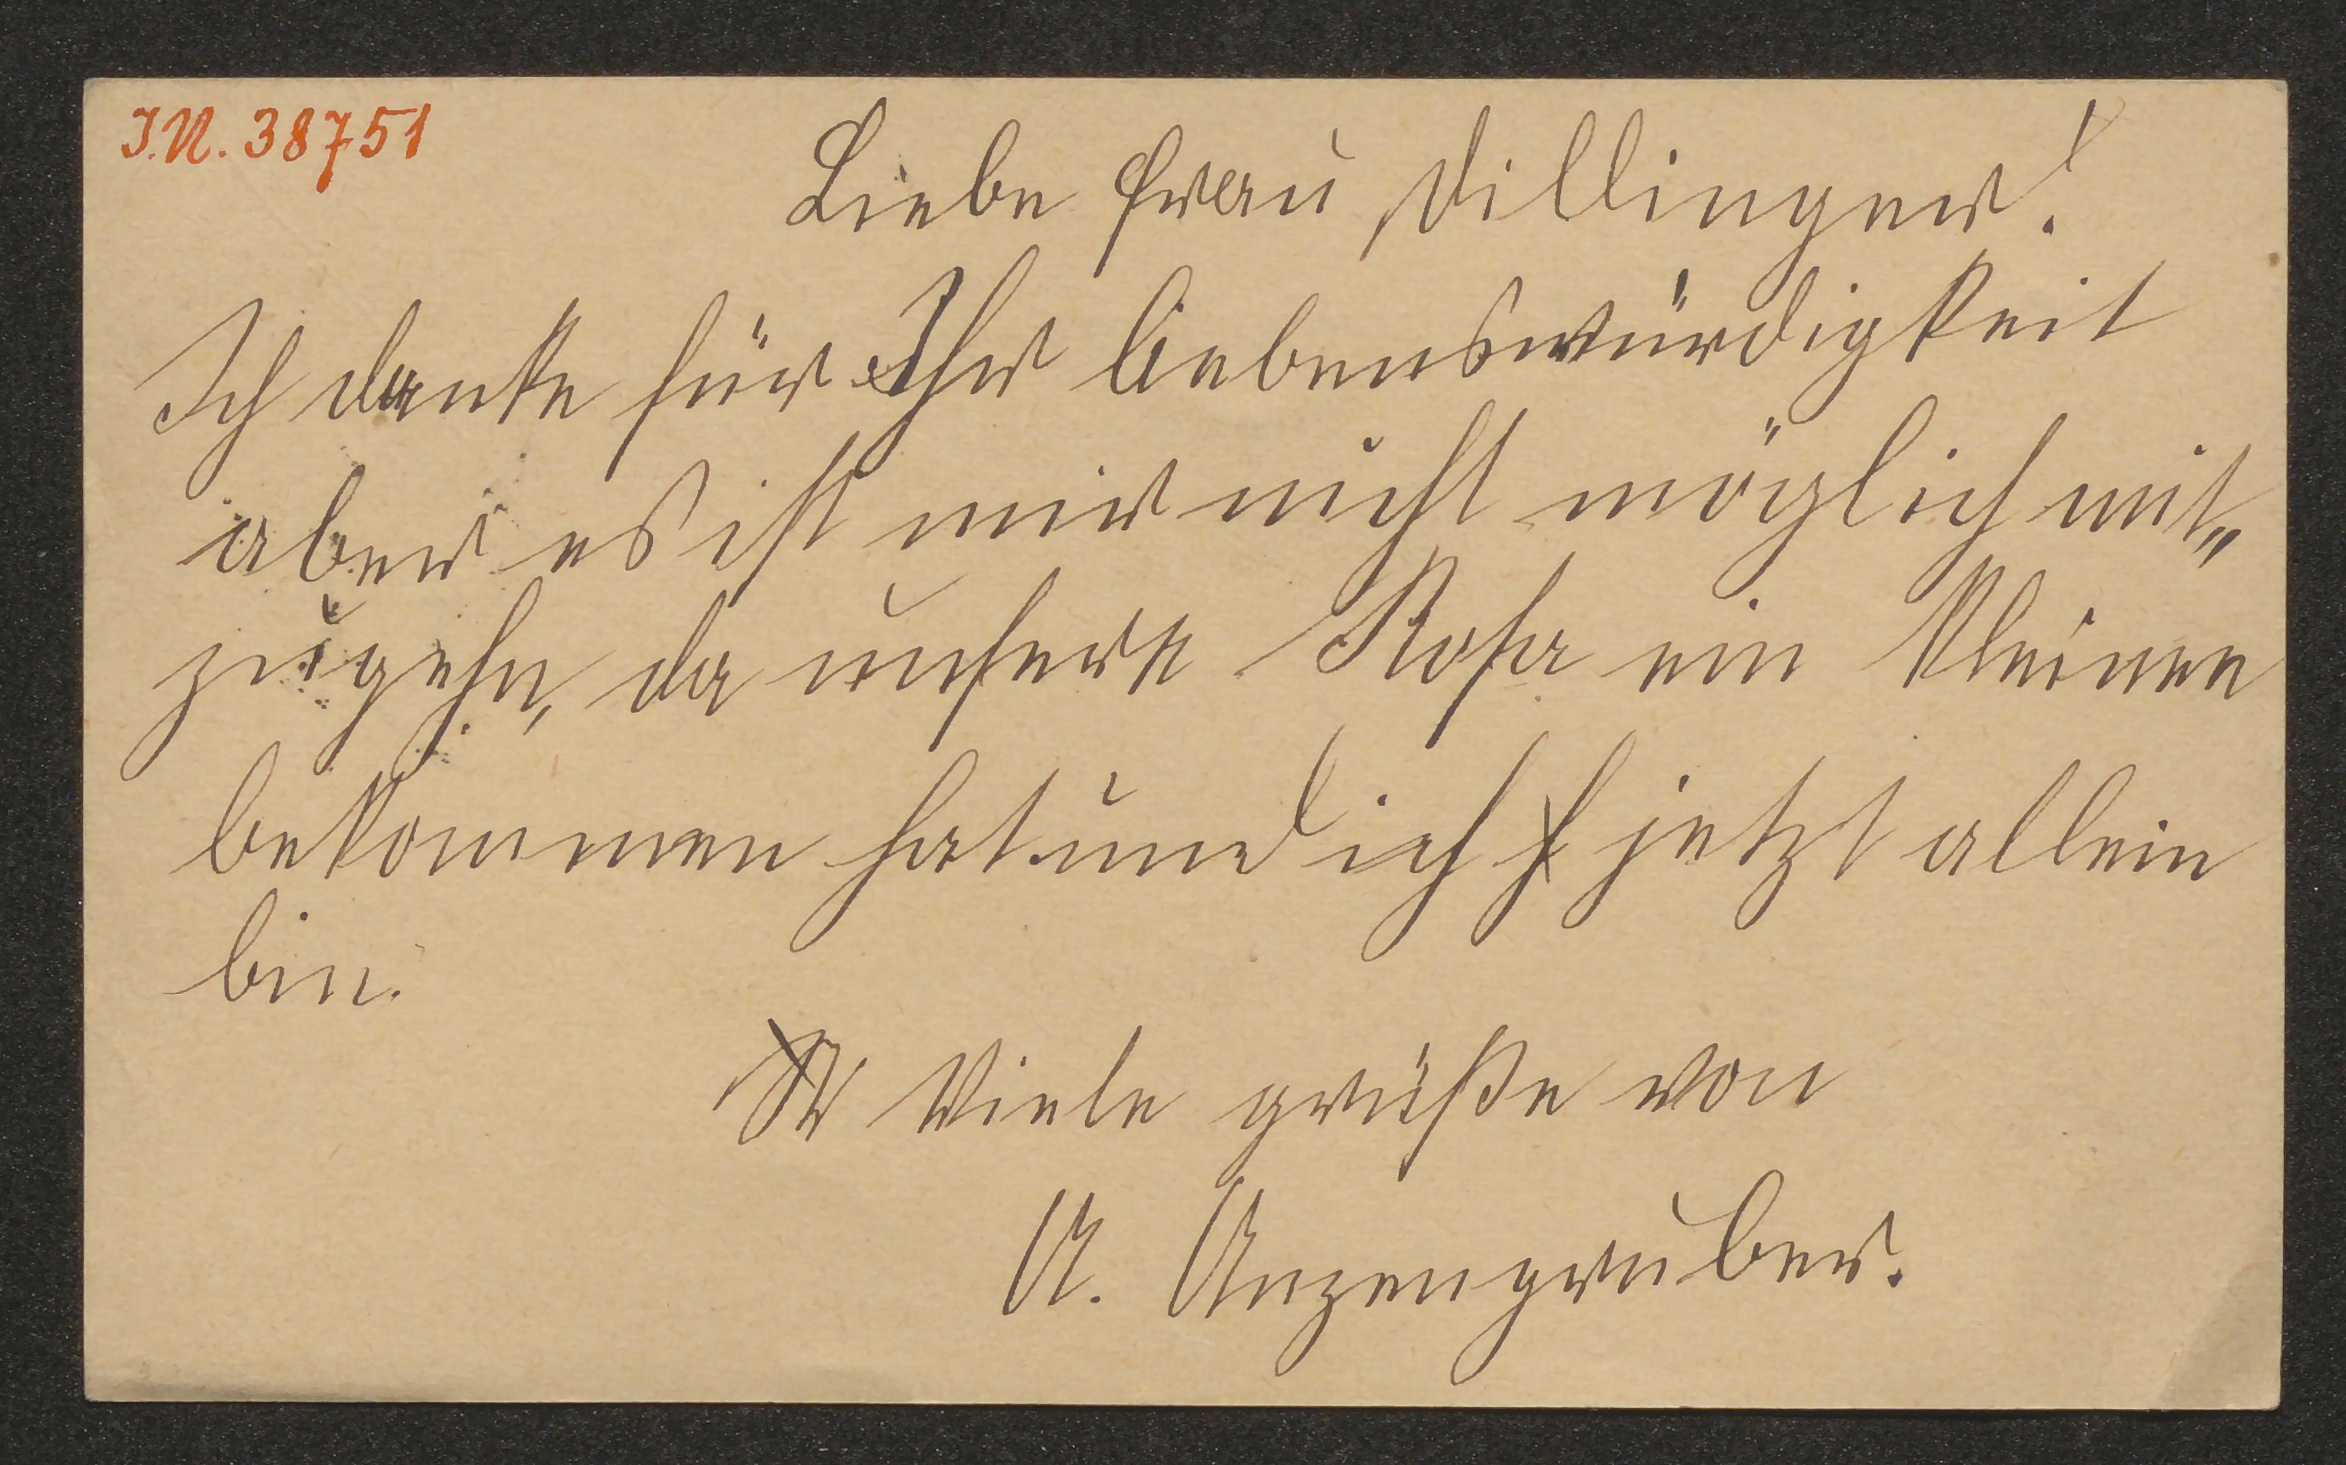 I.N. 38751
Liebe Frau Dillinger!
Ich danke für Ihr liebenswürdigkeit
aber es ist mir nicht möglich mit„
zugehn, da unsere Rosa ein Kleines
bekommen hat und ich jetzt allein
bin.
Viele grüße von
A. Anzengruber.